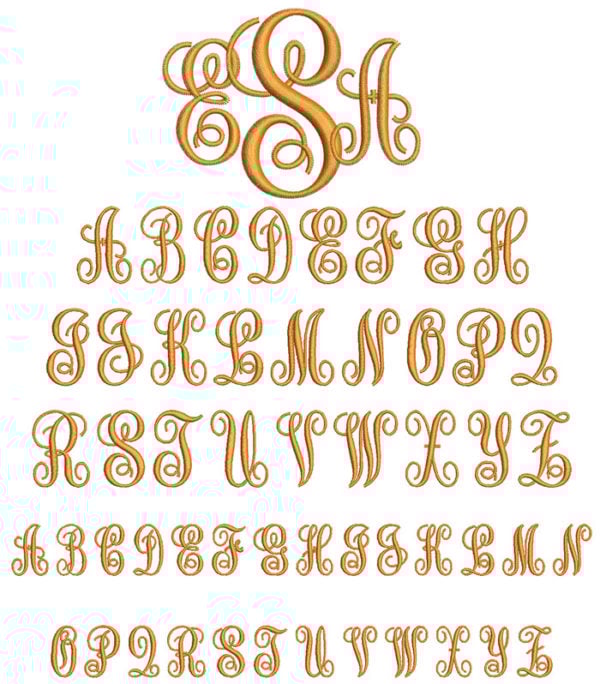 ESA
ABCDEFGH
IJKLMNOPQ
RSTUVWXYZ
ABCDEFGHIJKLMN
OPQRSTUVWXYZ